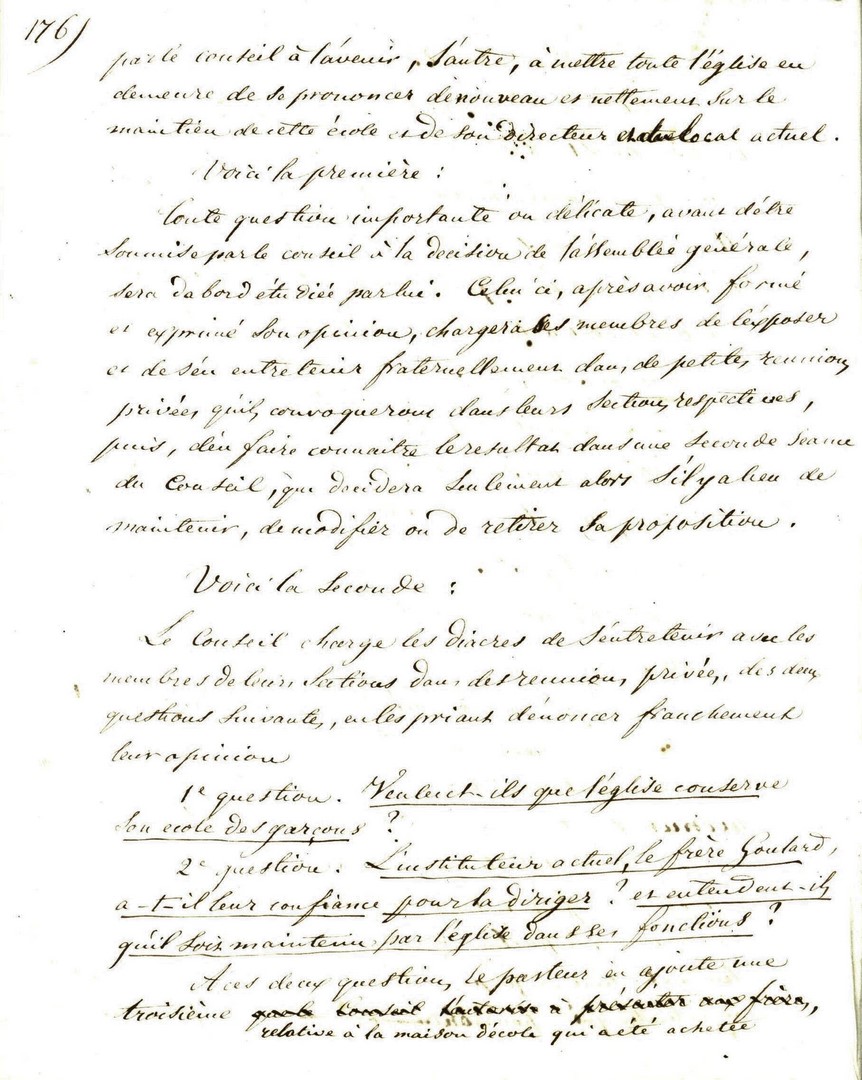 176)
par le conseil à l'avenir, l'autre, à mettre toute l'église en
demeure de se prononcer de nouveau et nettement sur le
maintien de cette école et de son directeur et du local actuel.
Voici la première :
Toute question importante ou délicate, avant d'être
soumise par le conseil à la decision de l'assemblée générale,
sera d'abord étudiée par lui. Celui ci, après avoir formé
et exprimé son opinion, chargera ses membres de l'exposer
et de s'en entretenir fraternellement dans de petites reunions
privées qu'ils convoqueront dans leurs sections respectives,
puis, d'en faire connaitre le resultat dans une seconde séance
du Conseil, qui decidera seulement alors s'il y a lieu de
maintenir, de modifier ou de retirer sa proposition.
Voici la seconde :
Le Conseil charge les diacres de s'entretenir avec les
membres de leurs sections dans des reunions privées, des deux
questions suivantes, en les priant d'énoncer franchement
leur opinion
1e question. Veulent-ils que l'église conserve
son ecole des garçons ?
2e question. L'instituteur actuel, le frère Goulard,
a-t-il leur confiance pour la diriger ? et entendent-ils
qu'il soit maintenu par l'église dans ses fonctions ?
A ces deux questions, le pasteur en ajoute une
troisième que le Conseil l'autorise à présenter aux frères,
relative à la maison d'école qui a été achetée